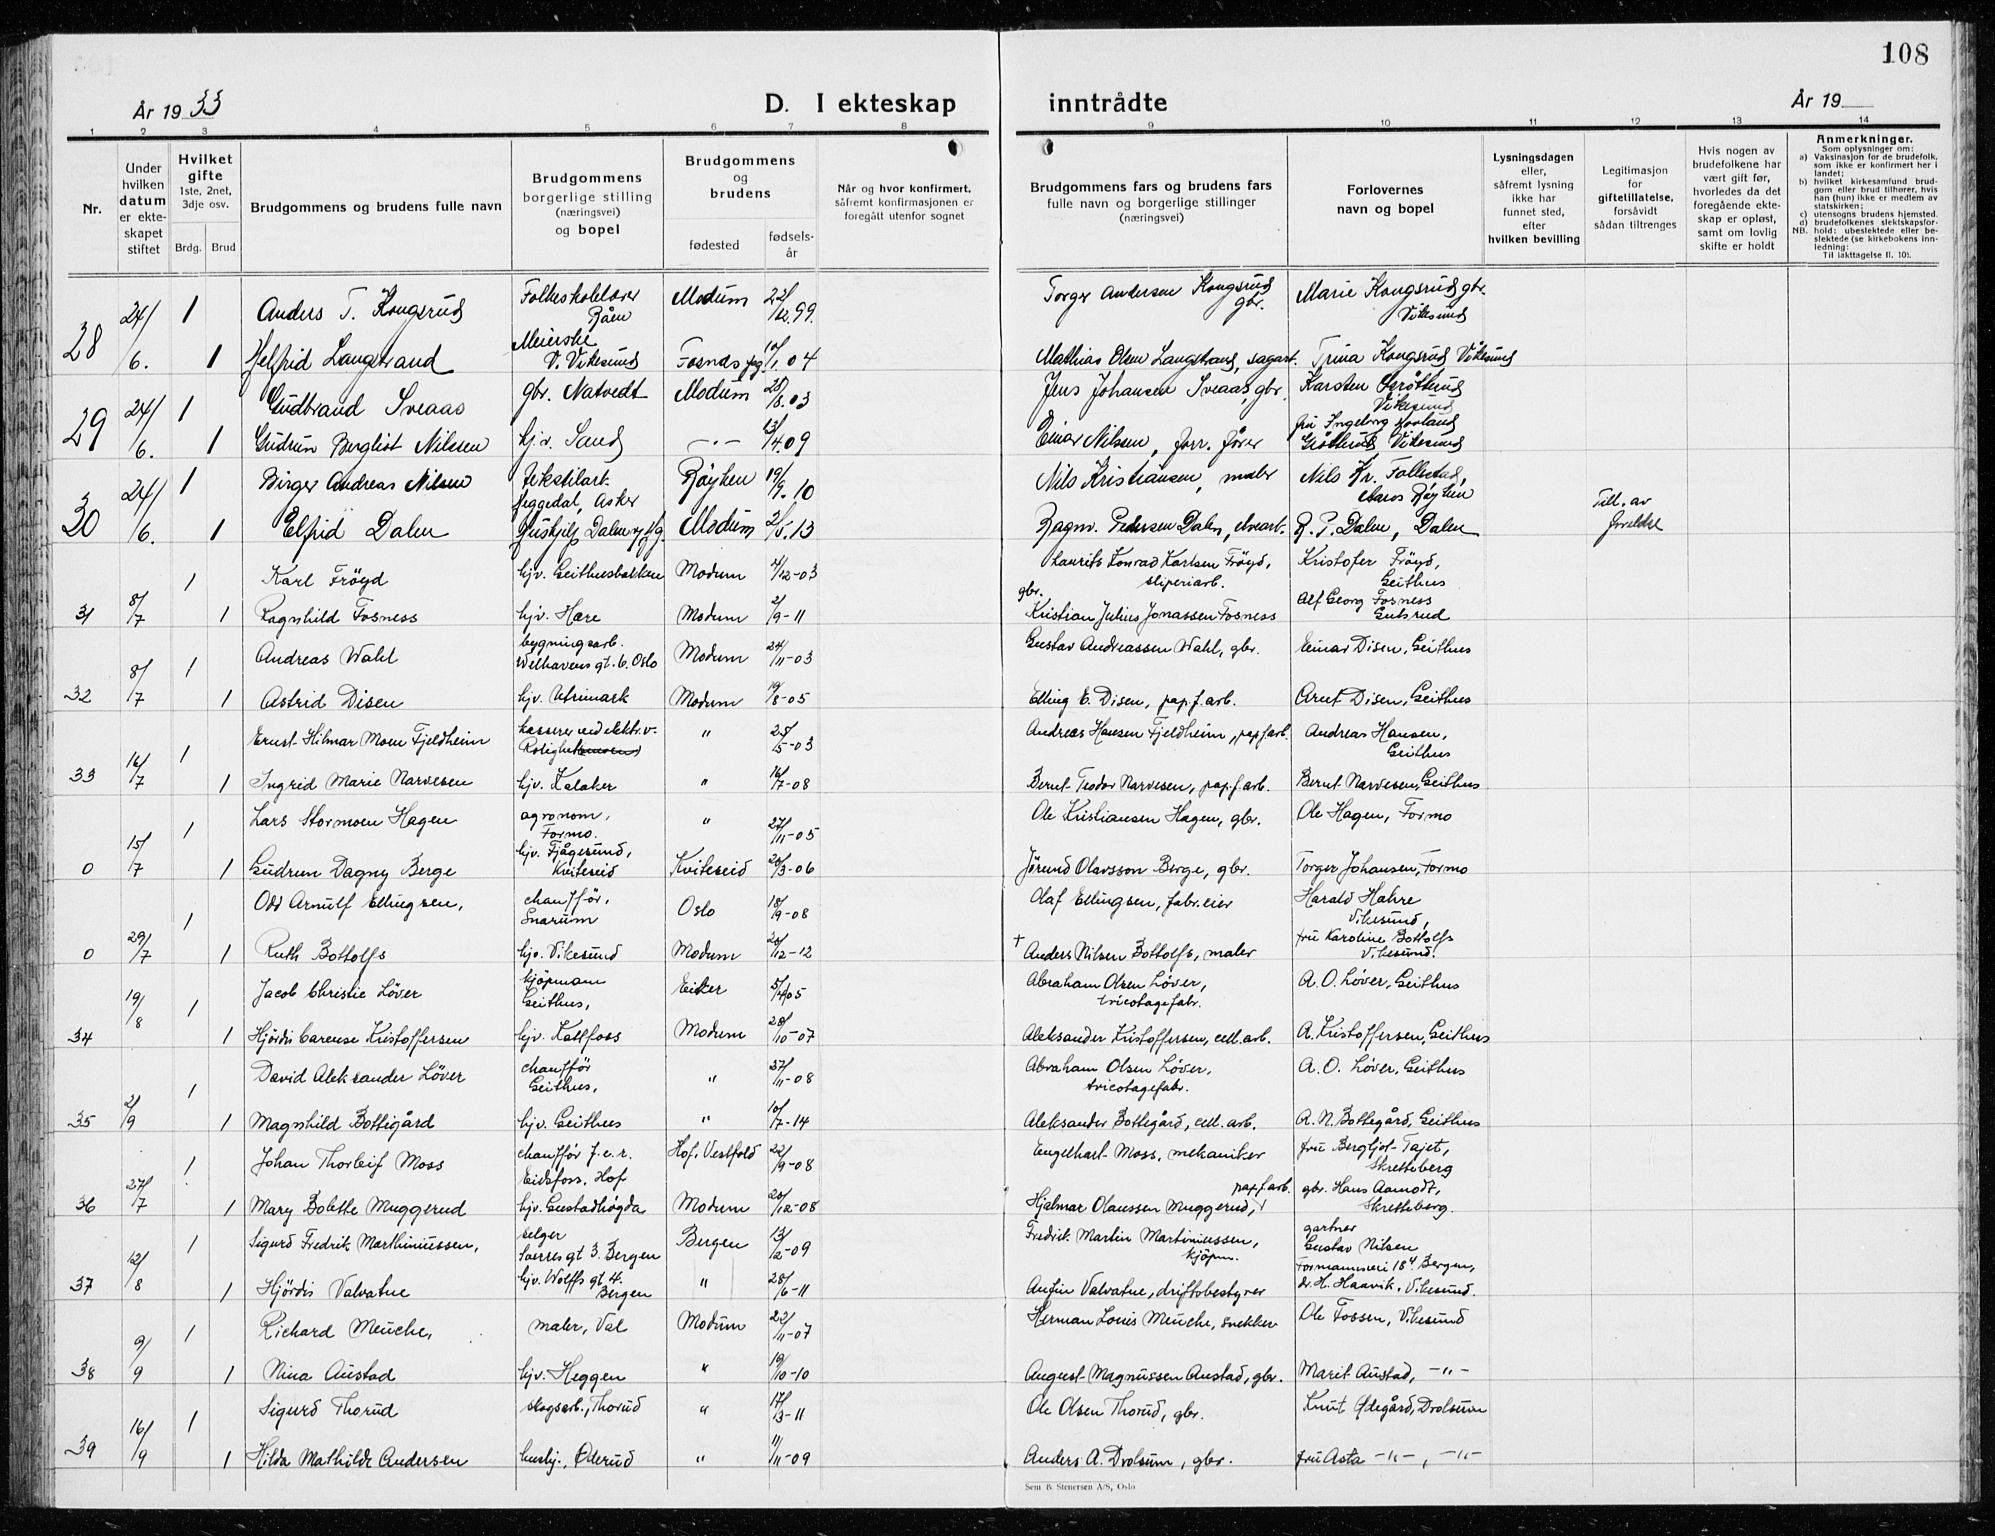 108
År 19 33
D. I ekteskap inntrådte
År 19
1 2 3 4 5 6 7 8 9 10 11 12 13 14
Nr.
Under hvilken datum er ekteskapet stiftet
Hvilket gifte 1ste, 2net, 3dje osv.
Brdg. Brud
Brudgommens og brudens fulle navn
Brudgommens borgerlige stilling (næringsvei) og bopel
Brudgommens og brudens
fødested
fødsels-år
Når og hvor konfirmert, såfremt konfirmasjonen er foregått utenfor sognet
Brudgommens fars og brudens fars fulle navn og borgerlige stillinger (næringsvei)
Forlovernes navn og bopel
Lysningsdagen eller, såfremt lysning ikke har funnet sted, efter hvilken bevilling
Legitimasjon for giftetillatelse, forsåvidt sådan tiltrenges
Hvis nogen av brudefolkene har vært gift før, hvorledes da det foregående ekteskap er opløst, samt om lovlig skifte er holdt
Anmerkninger.
Som oplysninger om:
a) Vaksinasjon for de brudefolk, som ikke er konfirmert her i landet;
b) hvilket kirkesamfund brudgom eller brud tilhører, hvis han (hun) ikke er medlem av statskirken;
c) utensogns brudens hjemsted.
d) brudefolkenes slektskapsforhold: ubeslektede eller beslektede (se kirkebokens innledning:
NB.
Til iakttagelse II. 10).
28 24/6. 1 Anders T. Kongsrud Folkeskolelærer Råen Modum 22/12.99. Torger Andersen Kongsrud gbr. Marie Kongsrud gbr. Vikesund
1 Helfrid Langstrand Meierske V. Vikesund Fosnes 10/1.04 Mathias Olsen Langstrand, sagarb. Trina Kongsrud Vikesund
29 24/6. 1 Gudbrand Sveaas gbr. Natvedt Modum 20/8.03 Jens Johansen Sveaas, gbr. Karsten Grøtterud Vikesund
1 Gudrun Bergliot Nilssen hjv. Sand -"- 13/4.09 Einar Nilsen, forr. fører fru Ingeborg Hovland Grøtterud Vikesund
30 24/6. 1 Birger Andreas Nilsen tekstilarb. Heggedal, Asker Røyken 19/9.10 Nils Kristiansen, maler Nils Kr. Follestad, Aaros Røyken
1 Elfrid Dalen Hushjelp Dalen Modum 2/5.13 Ragnv. Pedersen Dalen, elvearb. R. P. Dalen, Dalen Till. av foreldre
31 8/7 1 Karl Fröyd hjv. Geithusbakken Modum 4/12-03 Laurits Konrad Karlsen Fröyd, sliperiarb. Kristofer Fröyd, Geithus
1 Ragnhild Fosness hjv. Hære Modum 2/9-11 gbr. Kristian Julius Jonassen Fosness Alf Georg Fosness Gutsrud
32 8/7 1 Andreas Wahl bygningsarb. Welhavens gt. 6. Oslo Modum 24/11-03 Gustav Andreassen Wahl, gbr. Einar Disen, Geithus
1 Astrid Disen hjv. Utrimark Modum 19/8-05 Elling E. Disen, pap.f.arb. Arnt Disen, Geithus
33 16/7 1 Ernst Hilmar Moen Fjeldheim kasserer ved elektr.v. " 25/5-03 Andreas Hansen Fjeldheim, papfarb. Andreas Hansen, Geithus
1 Ingrid Marie Narvesen hjv. Kalaker " 16/7-08 Bernt Teodor Narvesen, pap.f.arb. Bernt Narvesen, Geithus
0 15/7 1 Lars Stormoen Hagen agronom, Formo. " 27/11-05 Ole Kristiansen Hagen, gbr. Ole Hagen, Formo
1 Gudrun Dagny Berge hjv. Fjågesund, Kviteseid Kviteseid 20/3-06 Jørund Olavsson Berge, gbr. Torger Johansen, Formo
0 29/7 1 Odd Arnulf Ellingsen, chauffør, Snarum Oslo 18/9-08 Olaf Ellingsen, fabr.eier Harald Hahre Vikesund,
1 Ruth Bottolfs hjv. Vikesund Modum 20/12-12 † Anders Nilsen Bottolfs, maler fru Karoline Bottolfs Vikesund.
34 19/8 1 Jacob Christie Löver kjøpmann Geithus, Eiker 5/4 05 Abraham Olsen Löver, tricotagefabr. A. O. Löver, Geithus
1 Hjördis Carense Kristoffersen hjv. Katfoss Modum 28/10-07 Aleksander Kristoffersen, cell.arb. A. Kristoffersen, Geithus
35 2/9 1 David Aleksander Löver chauffør Geithus, " 27/11-08 Abraham Olsen Löver, tricotagefabr. A. O. Löver, Geithus
1 Magnhild Bottigård hjv. Geithus " 10/7-14 Aleksander Bottegård, cell.arb. A. N. Bottegård, Geithus
36 27/7 1 Johan Thorleif Moss chauffør f.e.r. Eidsfoss, Hof Hof, Vestfold 22/9-08 Engelhart Moss, mekaniker fru Bergljot Tajet, Skretteberg
1 Mary Bolette Muggerud hjv. Gustadhøgda Modum 20/12-08 Hjalmar Olaussen Muggerud, papf.arb. gbr. Hans Aamodt, Skretteberg
37 12/8 1 Sigurd Fredrik Marthiniussen, selger Sverres gt 3. Bergen Bergen 13/12-09 Fredrik Martin Martiniussen, kjöpm. gartner Gustav Nilsen Formannsvei 18⁴ Bergen,
1 Hjördis Valvatne hjv. Wolffs gt 4. Bergen " 28/6-11 Anfin Valvatne, driftsbestyrer dr. H. Haavik, Vikesund.
38 9/9 1 Richard Meuche, maler, Val Modum 22/11-07 Herman Louis Meuche, snekker Ole Fossen, Vikesund
1 Nina Austad hjv. Heggen " 19/10-10 August Magnussen Austad, gbr. Marit Austad, -"-
39 16/9 1 Sigurd Thorud skogsarb., Thorud " 17/3-11 Ole Olsen Thorud, gbr. Knut Ødegård, Drolsum
1 Hilda Mathilde Andersen hushj., Øderud " 11/11-09 Anders A. Drolsum, gbr. fru Asta -"-, -"-
Sem & Stenersen A/S, Oslo